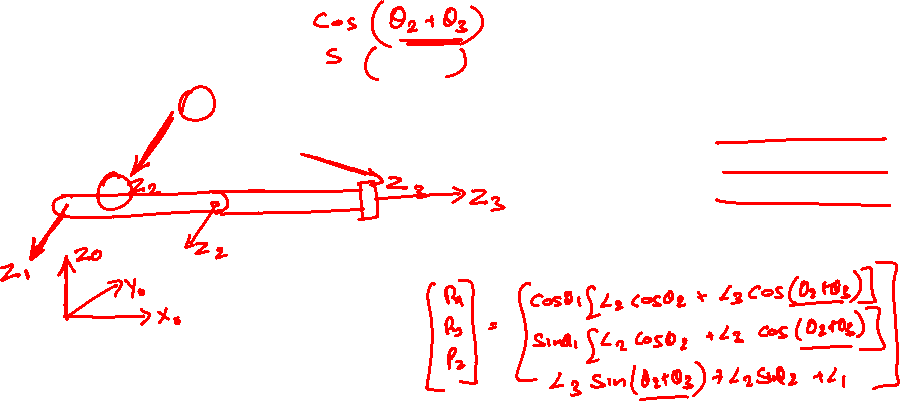 Cos (θ2 + θ3)
S ( )
Z2
Z3
Z2
Z1
Z0
Y0
X0
[Px Py Pz] = [
Cosθ1 [L2 Cosθ2 + L3 Cos (θ2+θ3)]
Sinθ1 [L2 Cosθ2 + L3 Cos (θ2+θ3)]
L3 Sin (θ2+θ3) + L2 Sinθ2 + L1 ]